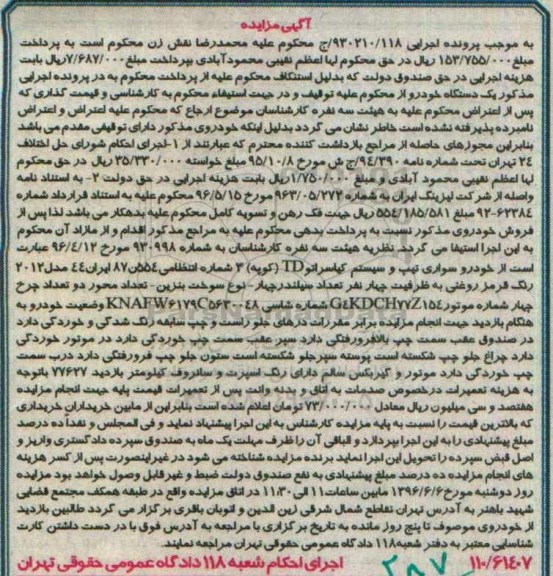 آگهی مزایده
به موجب پرونده اجرایی ۹۳۰۲۱۰/۱۱۸/ج محکوم علیه محمدرضا نقش زن محکوم است به پرداخت
مبلغ ۱۵۳/۷۵۵/۰۰۰ ریال در حق محکوم لها اعظم نقیبی محمودآبادی بپرداخت مبلغ ۷/۶۸۷/۰۰۰ریال بابت
هزینه اجرایی در حق صندوق دولت که بدلیل استنکاف محکوم علیه از پرداخت محکوم به در پرونده اجرایی
مذکور یک دستگاه خودرو از محکوم علیه توقیف و در جهت استیفاء محکوم به کارشناسی و قیمت گذاری که
پس از اعتراض محکوم علیه به هیئت سه نفره کارشناسان موضوع ارجاع که محکوم علیه اعتراض و اعتراض
نامبرده پذیرفته نشده است خاطر نشان می گردد بدلیل اینکه خودروی مذکور دارای توقیفی مقدم می باشد
بنابراین مجوزهای حاصله از مراجع بازداشت کننده محترم که عبارتند از ۱-اجرای احکام شورای حل اختلاف
۲۴ تهران تحت شماره نامه ۹۴/۳۹۰/ج ش مورخ ۹۵/۱۰/۸ مبلغ خواسته ۳۵/۳۳۰/۰۰۰ ریال در حق محکوم
لها اعظم نقیبی محمود آبادی و مبلغ ۱/۷۵۰/۰۰۰ریال بابت هزینه اجرایی در حق دولت ۲- به استناد نامه
واصله از شرکت لیزینگ ایران به شماره ۹۶۳/۰۵/۲۷۲ مورخ ۹۶/۵/۱۵ محکوم علیه به استناد قرارداد شماره
۹۲-۶۲۳۸۴ مبلغ ۵۵۴/۱۸۵/۵۸۱ ریال جهت فک رهن و تسویه کامل محکوم علیه بدهکار می باشد لذا پس از
فروش خودروی مذکور نسبت به پرداخت بدهی محکوم علیه به مراجع مذکور اقدام و از مازاد آن محکوم
به این اجرا استیفا می گردد. نظریه هیئت سه نفره کارشناسان به شماره ۹۳۰۹۹۸ مورخ ۹۶/۴/۱۲ عبارت
است از خودرو سواری تیپ و سیستم کیاسراتو TD (کوپه) ۳ شماره انتظامی ۵۵۴ن۸۷ ایران۴۴ مدل۲۰۱۲
رنگ قرمز روغنی به ظرفیت چهار نفر تعداد سیلندرچهار-نوع سوخت بنزین-تعداد محور دو تعداد چرخ
چهار شماره موتور G۴KDCH۷۷Z۱۵۴ شماره شاسی KNAFW۶۱۷۹C۵۶۳۰۰۴۸ وضعیت خودرو به
هنگام بازدید جهت انجام مزایده برابر مقررات درهای جلو راست و چپ سابقه رنگ شدگی و خوردگی دارد
در صندوق عقب سمت چپ بالافرورفتگی دارد سپر عقب سمت چپ خوردگی دارد در موتور خوردگی
دارد چراغ جلو چپ شکسته است پوسته سپرجلو شکسته است ستون جلو چپ فرورفتگی دارد درب سمت
چپ خوردگی دارد موتور و گیربکس سالم دارای رنگ اسپرت و سانروف کیلومتر بازدید ۷۷۶۲۷ باتوجه
به هزینه تعمیرات درخصوص صدمات به اتاق و بدنه وانت پس از تعمیرات قیمت پایه جهت انجام مزایده
هفتصد و سی میلیون ریال معادل ۷۳/۰۰۰/۰۰۰تومان اعلام شده است بنابراین از مابین خریداران خریداری
که بالاترین قیمت را نسبت به پایه مزایده کارشناس به این اجرا پیشنهاد نماید و فی المجلس و نقداً ده درصد
مبلغ پیشنهادی را به این اجرا بپردازد و الباقی آن را ظرف مهلت یک ماه به صندوق سپرده دادگستری واریز و
اصل قبض سپرده را تحویل این اجرا نماید برنده مزایده شناخته می شود در غیراینصورت پس از کسر هزینه
های انجام مزایده ده درصد مبلغ پیشنهادی به نفع صندوق دولت ضبط و غیرقابل وصول خواهد بود مزایده
روز دوشنبه مورخ ۱۳۹۶/۶/۶ مابین ساعات۱۱ الی ۱۱:۳۰ در اتاق مزایده واقع در طبقه همکف مجتمع قضایی
شهید باهنر به آدرس تهران تقاطع شمال شرقی زین الدین و اتوبان باقری برگزار می گردد طالبین بازدید
از خودروی موصوف تا پنج روز مانده به تاریخ برگزاری با مراجعه به آدرس فوق با در دست داشتن کارت
شناسایی معتبر به دفتر شعبه۱۱۸ دادگاه عمومی حقوقی تهران مراجعه نمایند.
۱۱۰/۶۱۴۰۷ ۲۸۷ اجرای احکام شعبه ۱۱۸ دادگاه عمومی حقوقی تهران